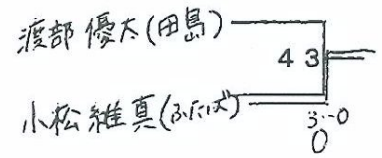 渡部 優太(田島)
43
小松 維真(ふたば)
3-0
0